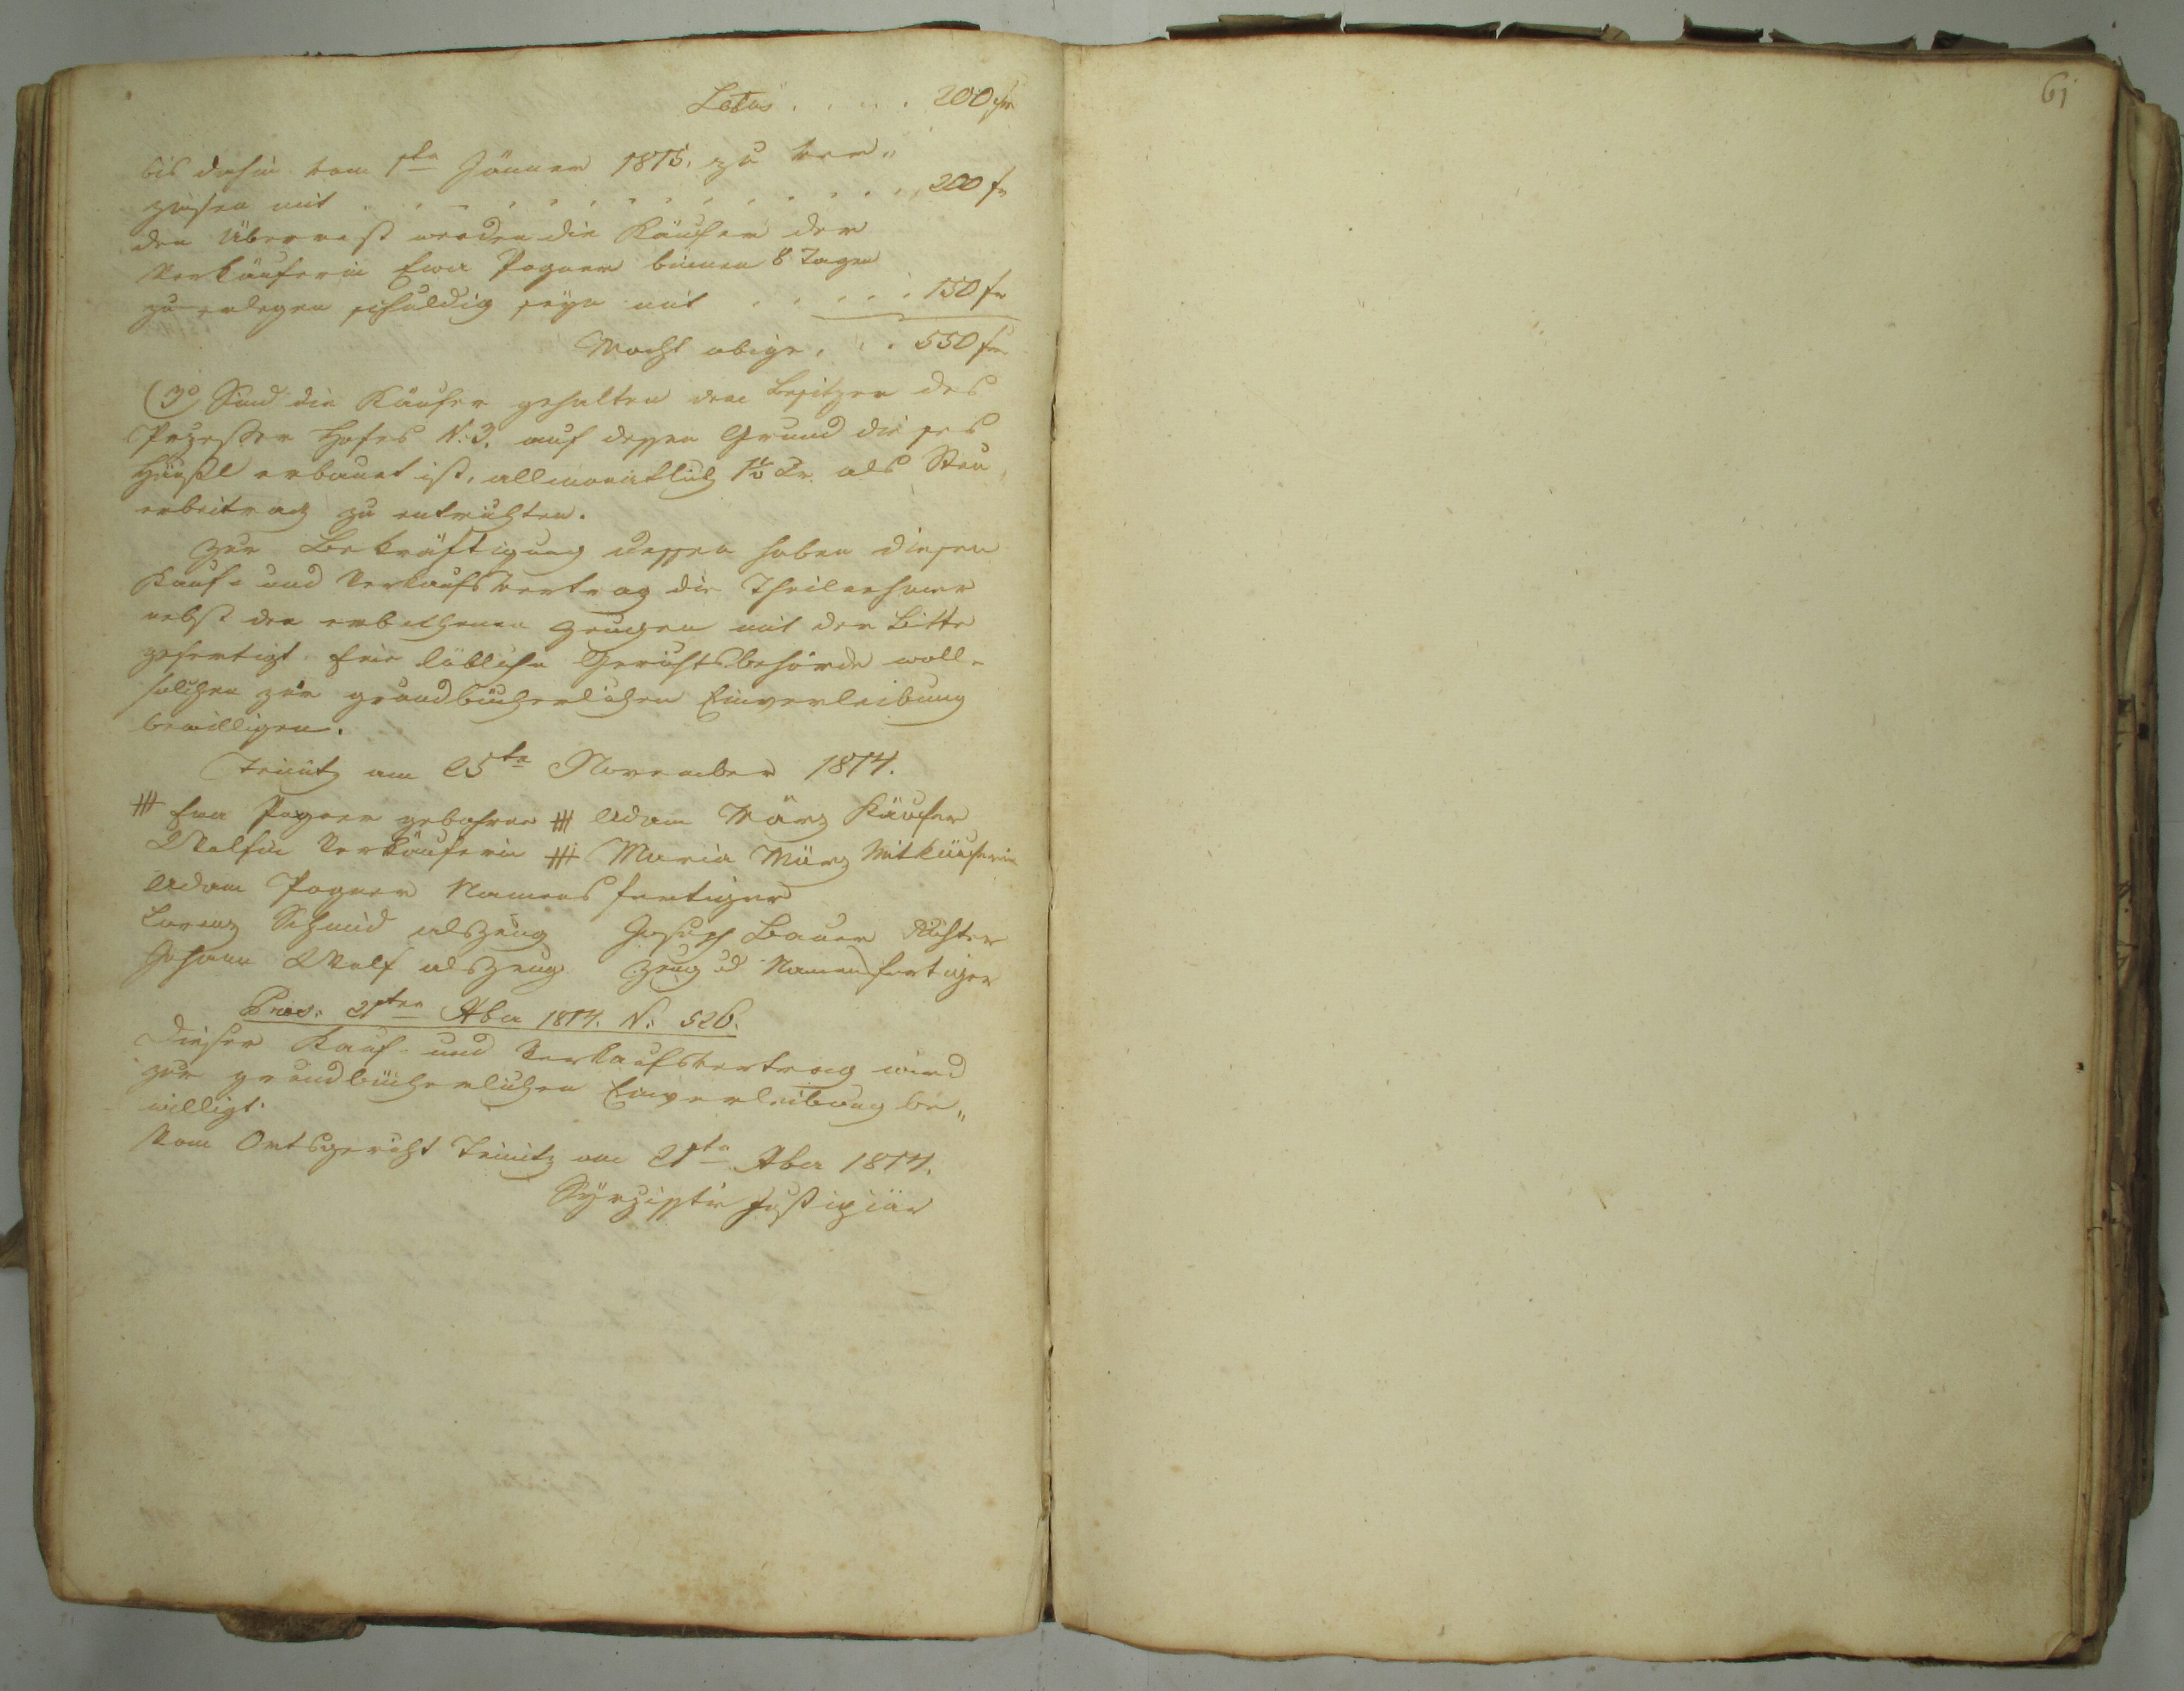 Latus . . . . . 200 fr
bis dahin vom 1ten Jänner 1815. zu ver„
zinsen mit . . . . . . . . . . . . . . 200 fr
den Überrest werden die Käufer der
Verkäuferin Eva Pogner binnen 8 Tagen
zu erlegen schuldig seyn mit . . . . . 150 fr
Macht obige . . . 550 fr
(3o) Sind die Käufer gehalten dem Besitzer des
Hofes N: 3. auf dessen Grund dieses
Häusl erbauet ist, allmonatlich Kr. als Steu„
erbeitrag zu entrichten.
Zur Bekräftigung dessen haben diesen
Kauf- und Verkaufsvertrag die Theilnehmer
nebst den erbethenen Zeugen mit der Bitte
gefertigt. Eine löbliche Gerichtsbehörde wolle
solchen zur grundbücherlichen Einverleibung
bewilligen.
am 25ten November 1814.
+++ Eva Pogner gebohrne +++ Adam März Käufer
Wolfin Verkäuferin +++ Maria März Mitkäuferin
Adam Pogner Namensfertiger
Lorenz Schmid als Zeug Joseph Bauer Richter
Johann Wolf als Zeug Zeug u Namensfertiger
Præs: 21ten Xber 1814. N: 526.
Dieser Kauf- und Verkaufsvertrag wird
zur grundbücherlichen Einverleibung be„
willigt.
Vom Ortsgericht am 21ten Xber 1814.
Justiziär
61